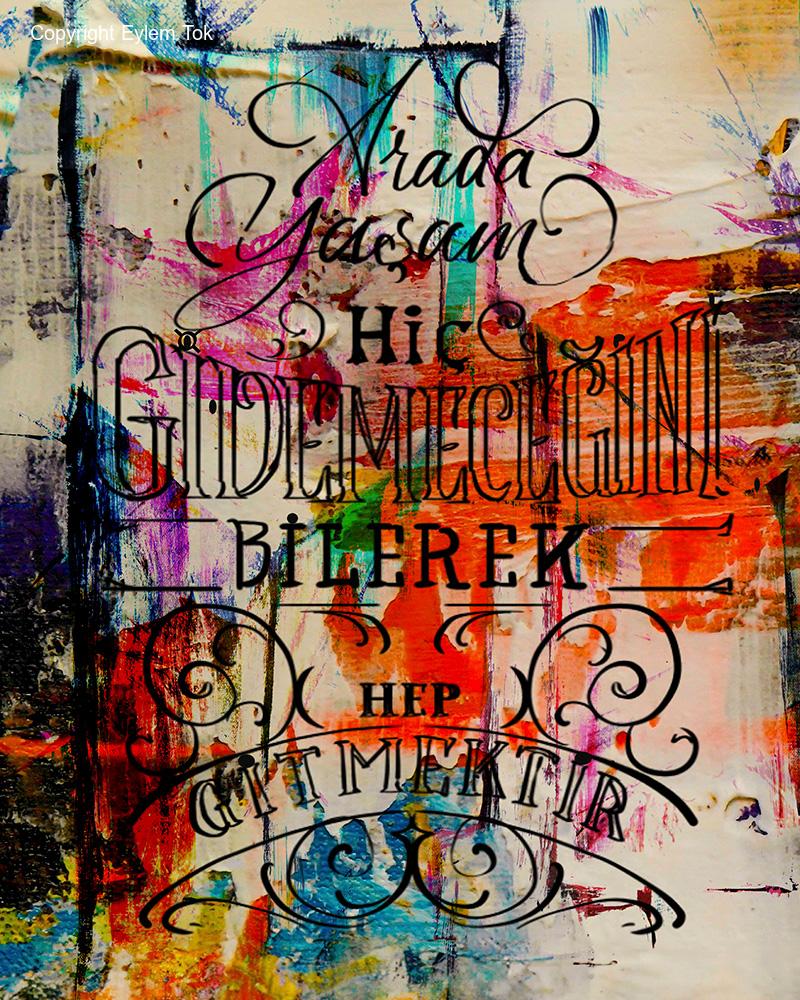 Copyright Eylem Tok
Arada
Yaşam
Hiç
GİDEMECEĞİNİ
BİLEREK
HEP
GİTMEKTİR